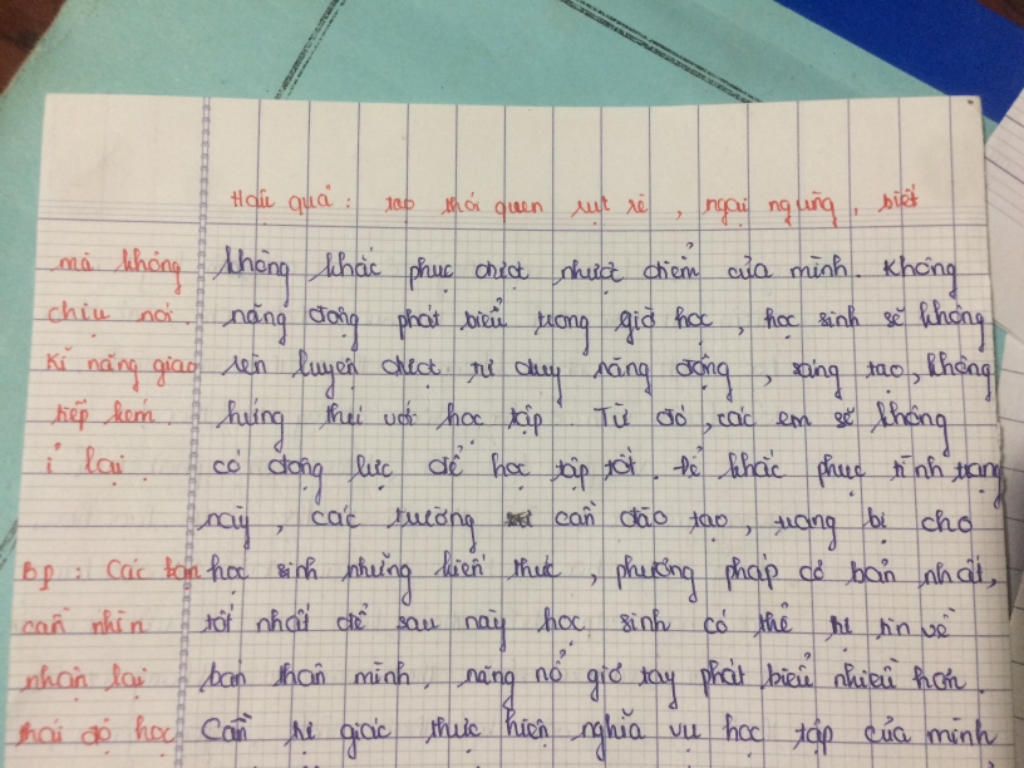 Hậu quả : tạo thói quen rụt rè , ngại ngùng , biết
mà không không khắc phục được nhược điểm của mình . Không
chịu nói . năng động phát biểu trong giờ học , học sinh sẽ không
Kĩ năng giao rèn luyện được tư duy năng động , sáng tạo , không
tiếp kém . hứng thú với học tập . Từ đó , các em sẽ không
ỉ lại . có động lực để học tập tốt . Để khắc phục tình trạng
này , các trường cần đào tạo , trang bị cho
Bp : Các bạn học sinh những kiến thức , phương pháp cơ bản nhất ,
cần nhìn tốt nhất để sau này học sinh có thể tự tin về
nhận lại bản thân mình , năng nổ giơ tay phát biểu nhiều hơn .
thái độ học Cần tự giác thực hiện nghĩa vụ học tập của mình